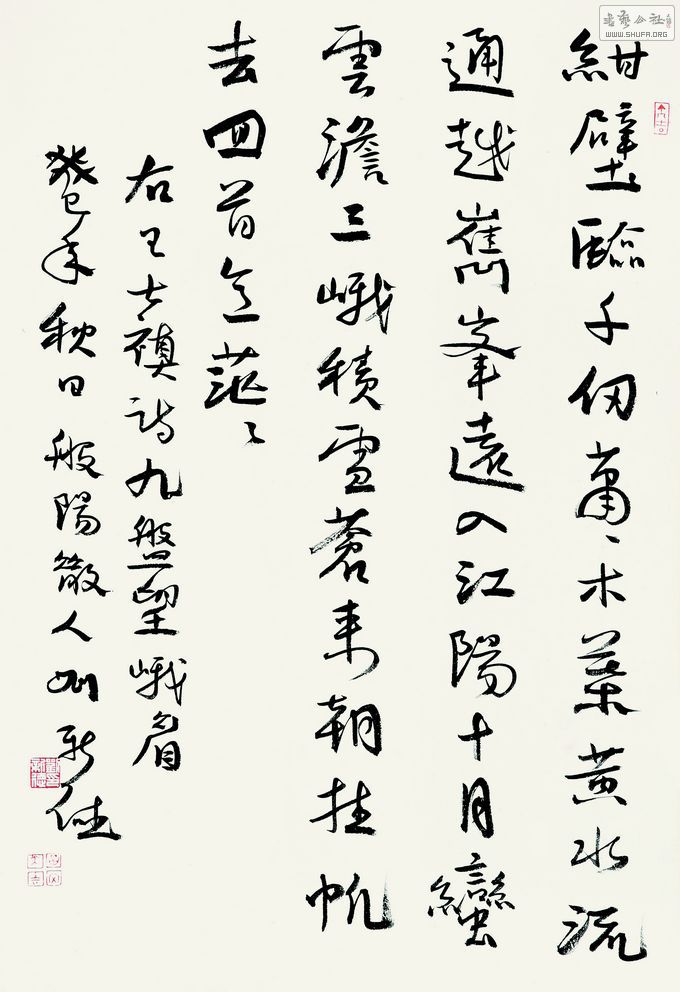 書藝公社
WWW.SHUFA.ORG
紺壁臨千仞蕭〻木葉黄水流
通越嶲峯遠入江陽十月蠻
雲澹三峨積雪蒼来朝挂帆
去回首意茫〻
右王士禛詩九盤望峨眉
癸巳年秋日般陽散人刘新德